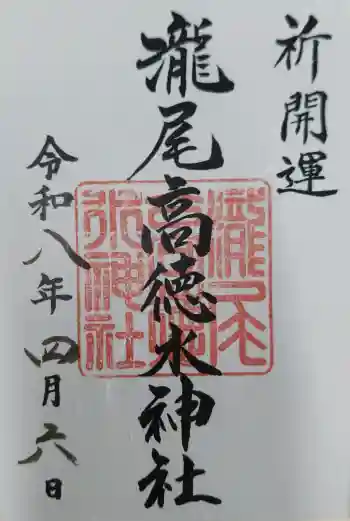 祈開運
瀧尾高徳水神社
令和八年四月六日
瀧尾
高徳
水神社